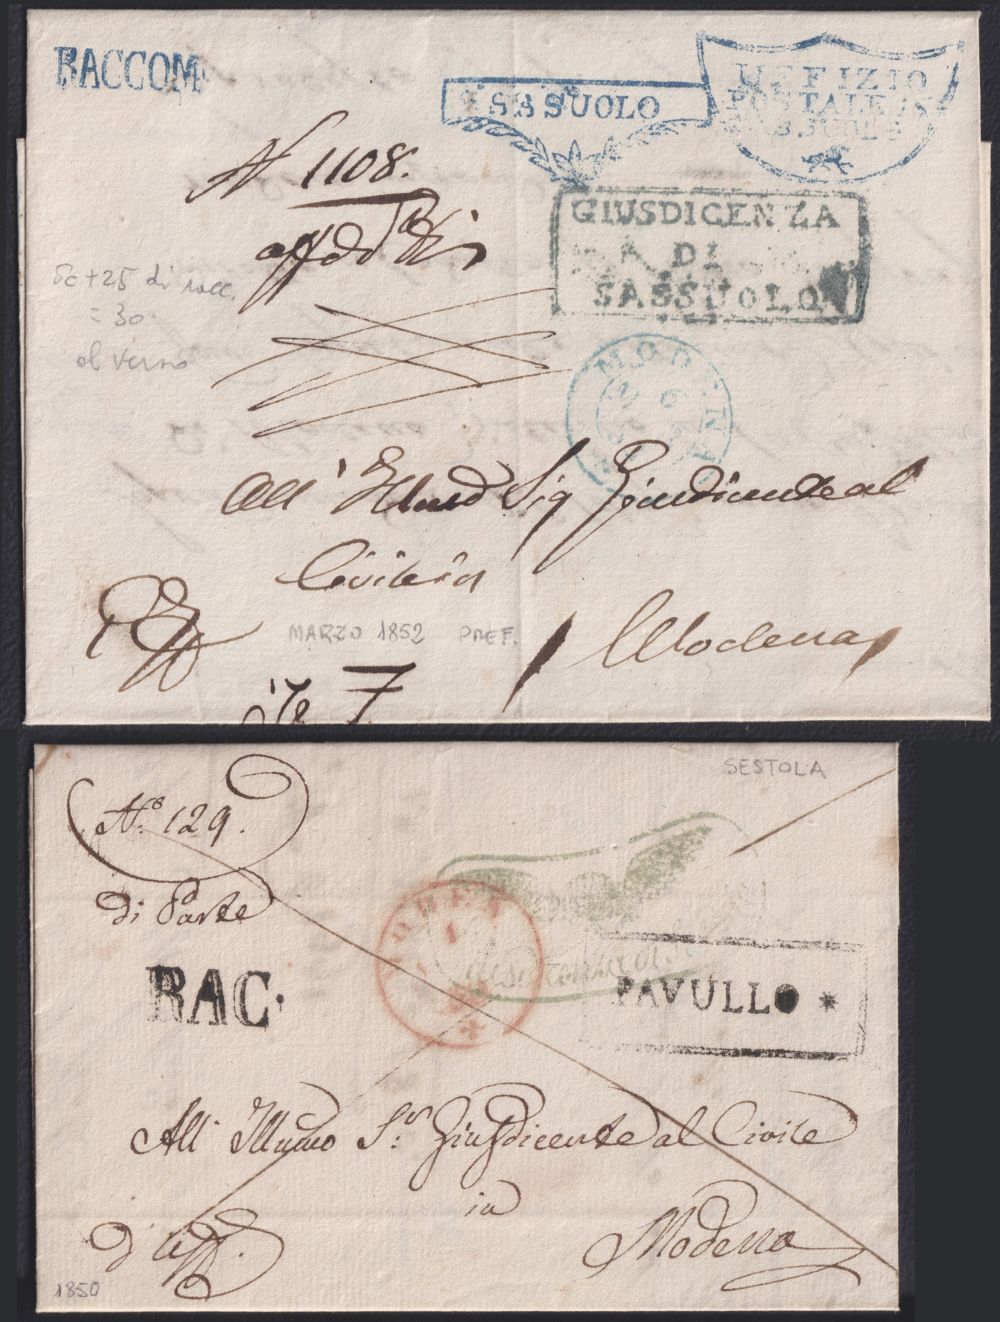 RACCOM
SASSUOLO
UFFIZIO
POSTALE
Nº 1108.
GIUSDICENZA
DI
SASSUOLO
8c + 25 di racc.
= 30
al verso
MODENA
All' Illmo Sig Giusdicente al
Civile in
MARZO 1852 PREF.
Modena
7
SESTOLA
Nº 129.
di Parte
MODENA
RAC.
PAVULLO *
All' Illumo Sr. Giusdicente al Civile
in
d'Uff.
Modena
1850